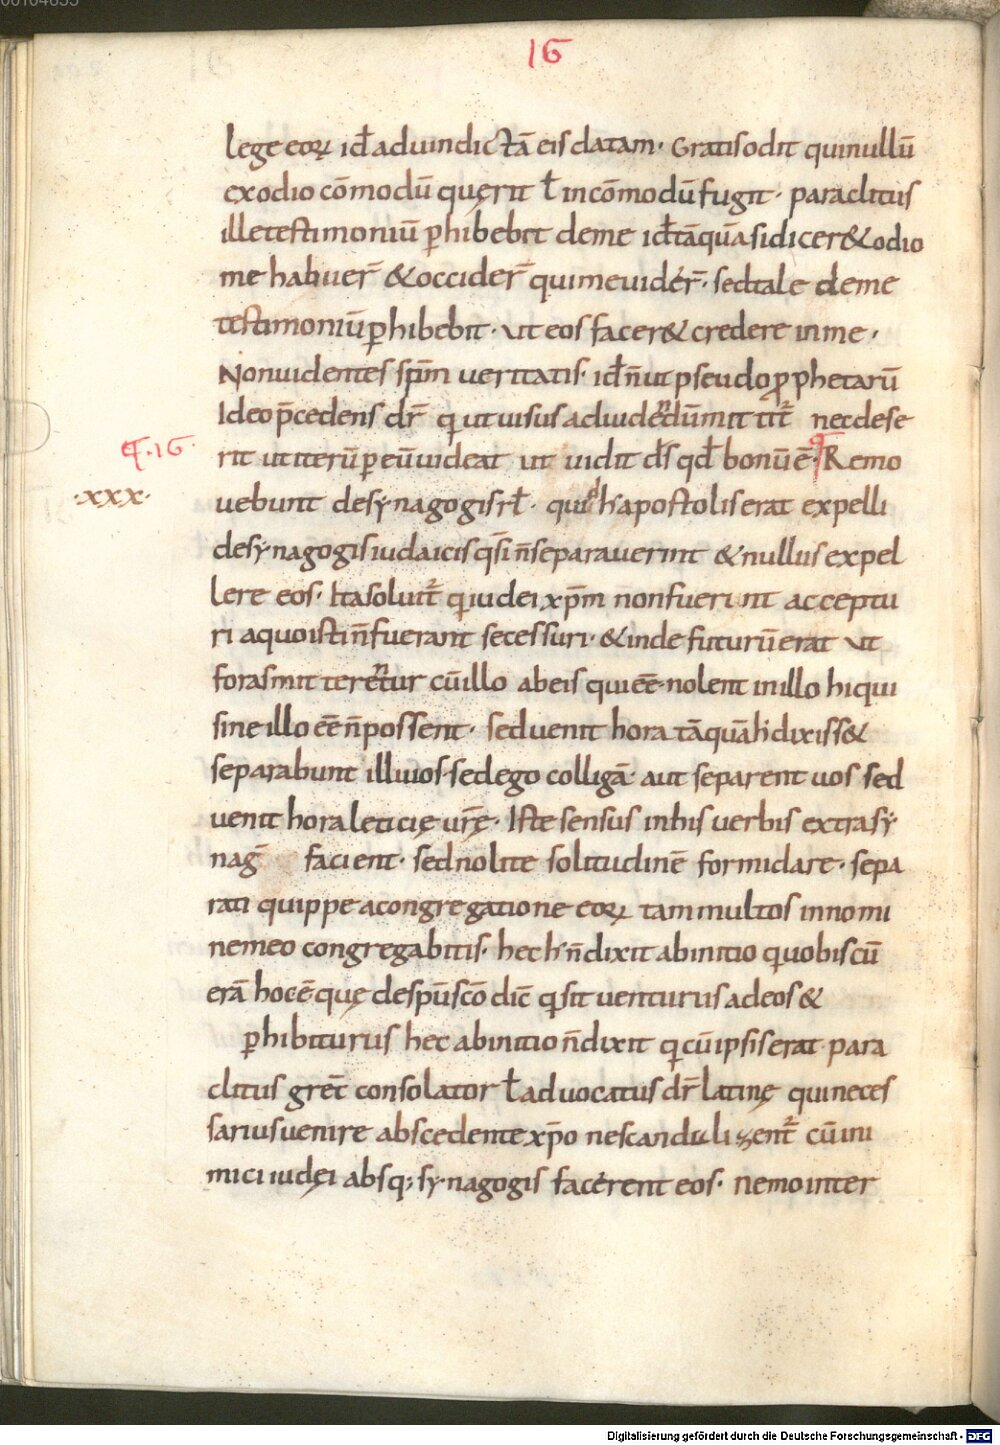 00104655
16
lege eoꝝ id̄ ad uindictā eis datam· Gratis odit qui nullū
ex odio cōmodū quęrit ł incōmodū fugit· paraclitus
ille testimoniū ꝑhibebit de me id̄ tāquā si dicer& odio
me habuer̄ & occider̄ qui me uidér̄· sed tale de me
testimoniū ꝑhibebit· ut eos facer& credere in me·
Non uidentes sp̄m ueritatis· id̄ n̄ ut pseudo ꝓphetarū
Ideo p̄cedens dr̄ q ut uisus ad uidendū mittit̄ nec dese
rit ut iterū ꝑ eū uideat ut uidit d̄s qd̄ bonū ē· Remo
uebunt de synagogis rł· quid h apostolis erat expelli
de synagogis iudaicis q si n̄ separauerint & nullus expel
lere eos· Ita soluit̄ q iudei xp̄m non fuerunt acceptu
ri a quo isti n̄ fuerant secessuri· & inde futurū erat ut
foras mitterentur cū illo ab eis qui ēē nolent in illo hi qui
sine illo ēē n̄ possent· sed uenit hora tāquā h dixiss&
separabunt illi uos· sed ego colligā· aut separent uos sed
uenit hora leticię ur̄ę· Iste sensus in his uerbis extra sy
naḡ facient· sed nolite solitudinē formidare· sepa
rati quippe a congregatione eoꝝ tam multos in nomi
ne meo congregabitis· hec h n̄ dixit ab initio q uobiscū
erā hoc ē quę de spū sc̄o dic̄ q sit uenturus ad eos &
ꝑhibiturus hec ab initio n̄ dixit q cū ipsis erat para
clitus grec̄ consolator ł aduocatus dr̄ latinę qui neces
sarius uenire abscedente xp̄o ne scandalizent̄ cū ini
mici iudęi absq; synagogis facérent eos· Nemo inter
·16·
·xxx·
Digitalisierung gefördert durch die Deutsche Forschungsgemeinschaft - DFG